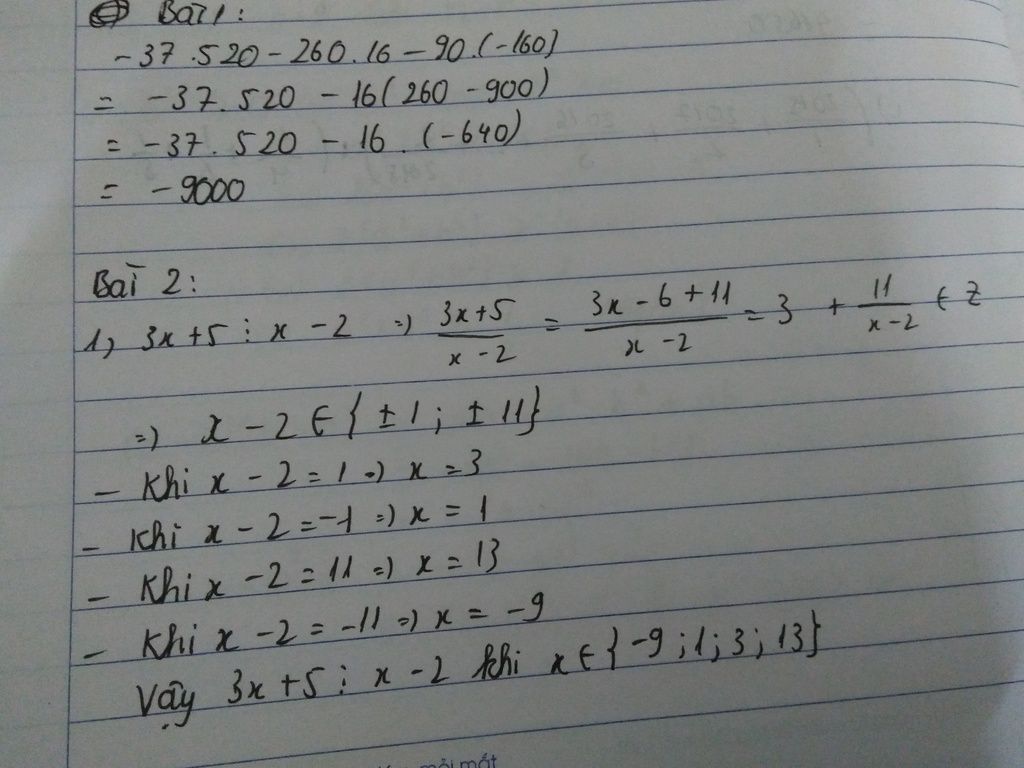 Bài 1:
-37.520 - 260.16 - 90.(-160)
= -37.520 - 16(260 - 900)
= -37.520 - 16.(-640)
= -9000
Bài 2:
1, 3x+5 ⋮ x-2 => \frac{3x+5}{x-2} = \frac{3x-6+11}{x-2} = 3 + \frac{11}{x-2} ∈ Z
=> x-2 ∈ {±1; ±11}
- Khi x-2=1 => x=3
- Khi x-2=-1 => x=1
- Khi x-2=11 => x=13
- Khi x-2=-11 => x=-9
Vậy 3x+5 ⋮ x-2 khi x∈{-9;1;3;13}
mỏi mắt